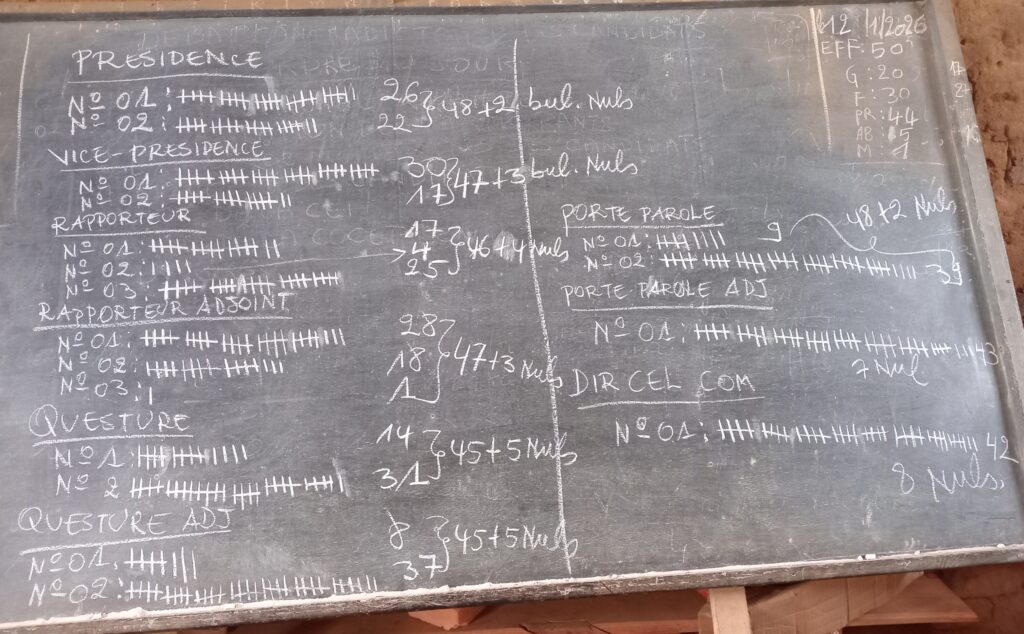 PRESIDENCE
Nº 01 : 26
Nº 02 : 22
48+2 bul. Nuls
VICE-PRESIDENCE
Nº 01 : 30
Nº 02 : 17
47+3 bul. Nuls
RAPPORTEUR
Nº 01 : 17
Nº 02 : 4
Nº 03 : 25
46+4 Nuls
RAPPORTEUR ADJOINT
Nº 01 : 28
Nº 02 : 18
Nº 03 : 1
47+3 Nuls
QUESTURE
Nº 1 : 14
Nº 2 31
45+5 Nuls
QUESTURE ADJ
Nº 01 : 8
Nº 02 : 37
45+5 Nuls
12 /1/2026
EFF: 50
G : 20
F : 30
PR : 44
AB : 5
M : 1
PORTE PAROLE
48+2 Nuls
Nº 01 : 9
Nº 02 : 39
PORTE PAROLE ADJ
Nº 01 : 43
7 Nul
DIR CEL COM
Nº 01 : 42
8 Nuls.